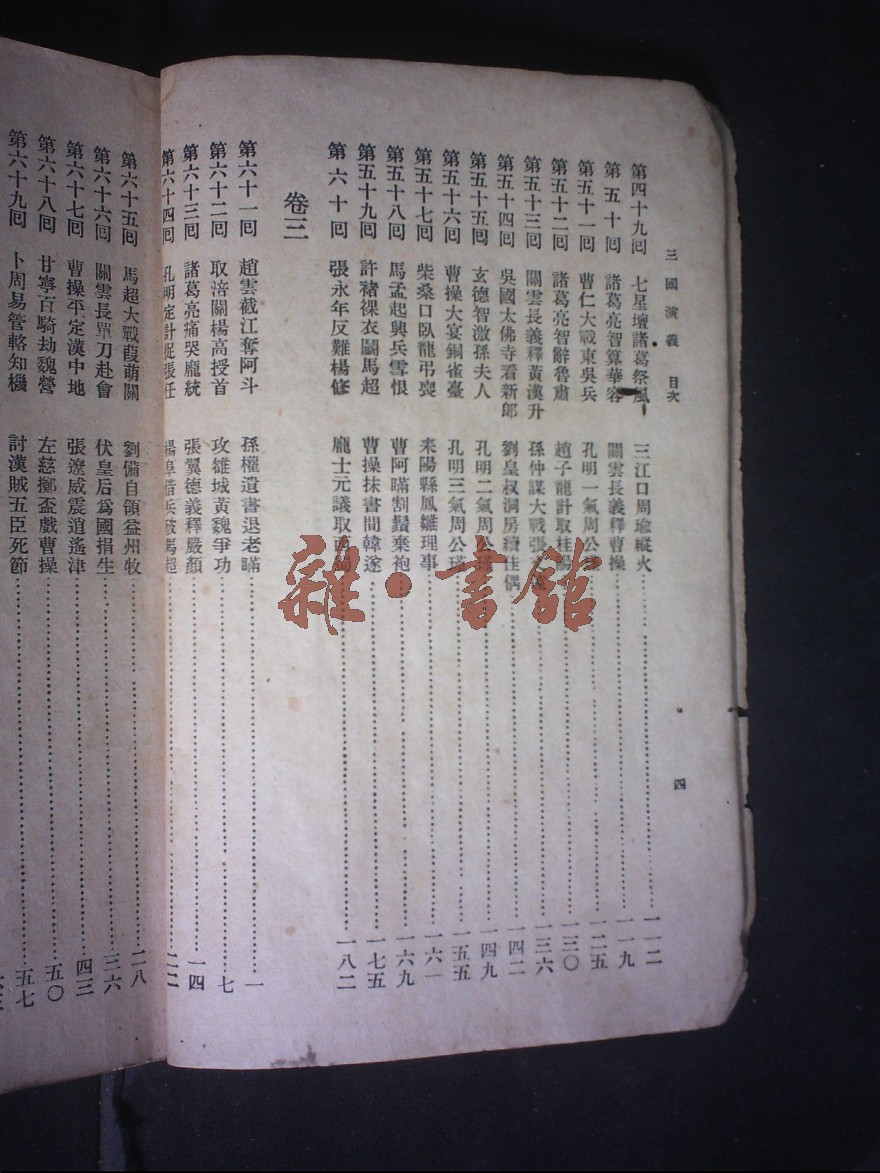 三國演義 目次 四
第四十九回 七星壇諸葛祭風 三江口周瑜縱火 一一二
第五十回 諸葛亮智算華容 關雲長義釋曹操 一一九
第五十一回 曹仁大戰東吳兵 孔明一氣周公瑾 一二五
第五十二回 諸葛亮智辭魯肅 趙子龍計取桂陽 一三〇
第五十三回 關雲長義釋黃漢升 孫仲謀大戰張文遠 一三六
第五十四回 吳國太佛寺看新郎 劉皇叔洞房續佳偶 一四二
第五十五回 玄德智激孫夫人 孔明二氣周公瑾 一四九
第五十六回 曹操大宴銅雀臺 孔明三氣周公瑾 一五五
第五十七回 柴桑口臥龍弔喪 耒陽縣鳳雛理事 一六一
第五十八回 馬孟起興兵雪恨 曹阿瞞割鬚棄袍 一六九
第五十九回 許褚裸衣鬭馬超 曹操抹書間韓遂 一七五
第六十回 張永年反難楊修 龐士元議取西蜀 一八二
卷三
第六十一回 趙雲截江奪阿斗 孫權遺書退老瞞 一
第六十二回 取涪關楊高授首 攻雒城黃魏爭功 七
第六十三回 諸葛亮痛哭龐統 張翼德義釋嚴顏 一四
第六十四回 孔明定計捉張任 楊阜借兵破馬超 二二
第六十五回 馬超大戰葭萌關 劉備自領益州牧 二八
第六十六回 關雲長單刀赴會 伏皇后爲國捐生 三六
第六十七回 曹操平定漢中地 張遼威震逍遙津 四三
第六十八回 甘寧百騎劫魏營 左慈擲盃戲曹操 五〇
第六十九回 卜周易管輅知機 討漢賊五臣死節 五七
雜·書館